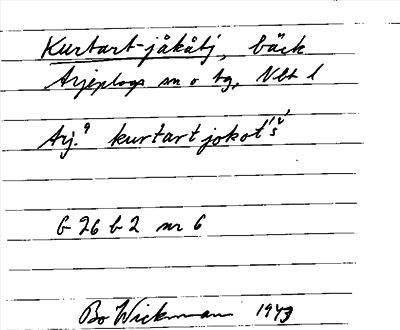 Kurtart-jåkåtj, bäck
Arjeplogs sn o tg, Vbt l
Arj.⁹ kurtart jokot'š́
G 26 b 2 nr 6
Bo Wickman 1943